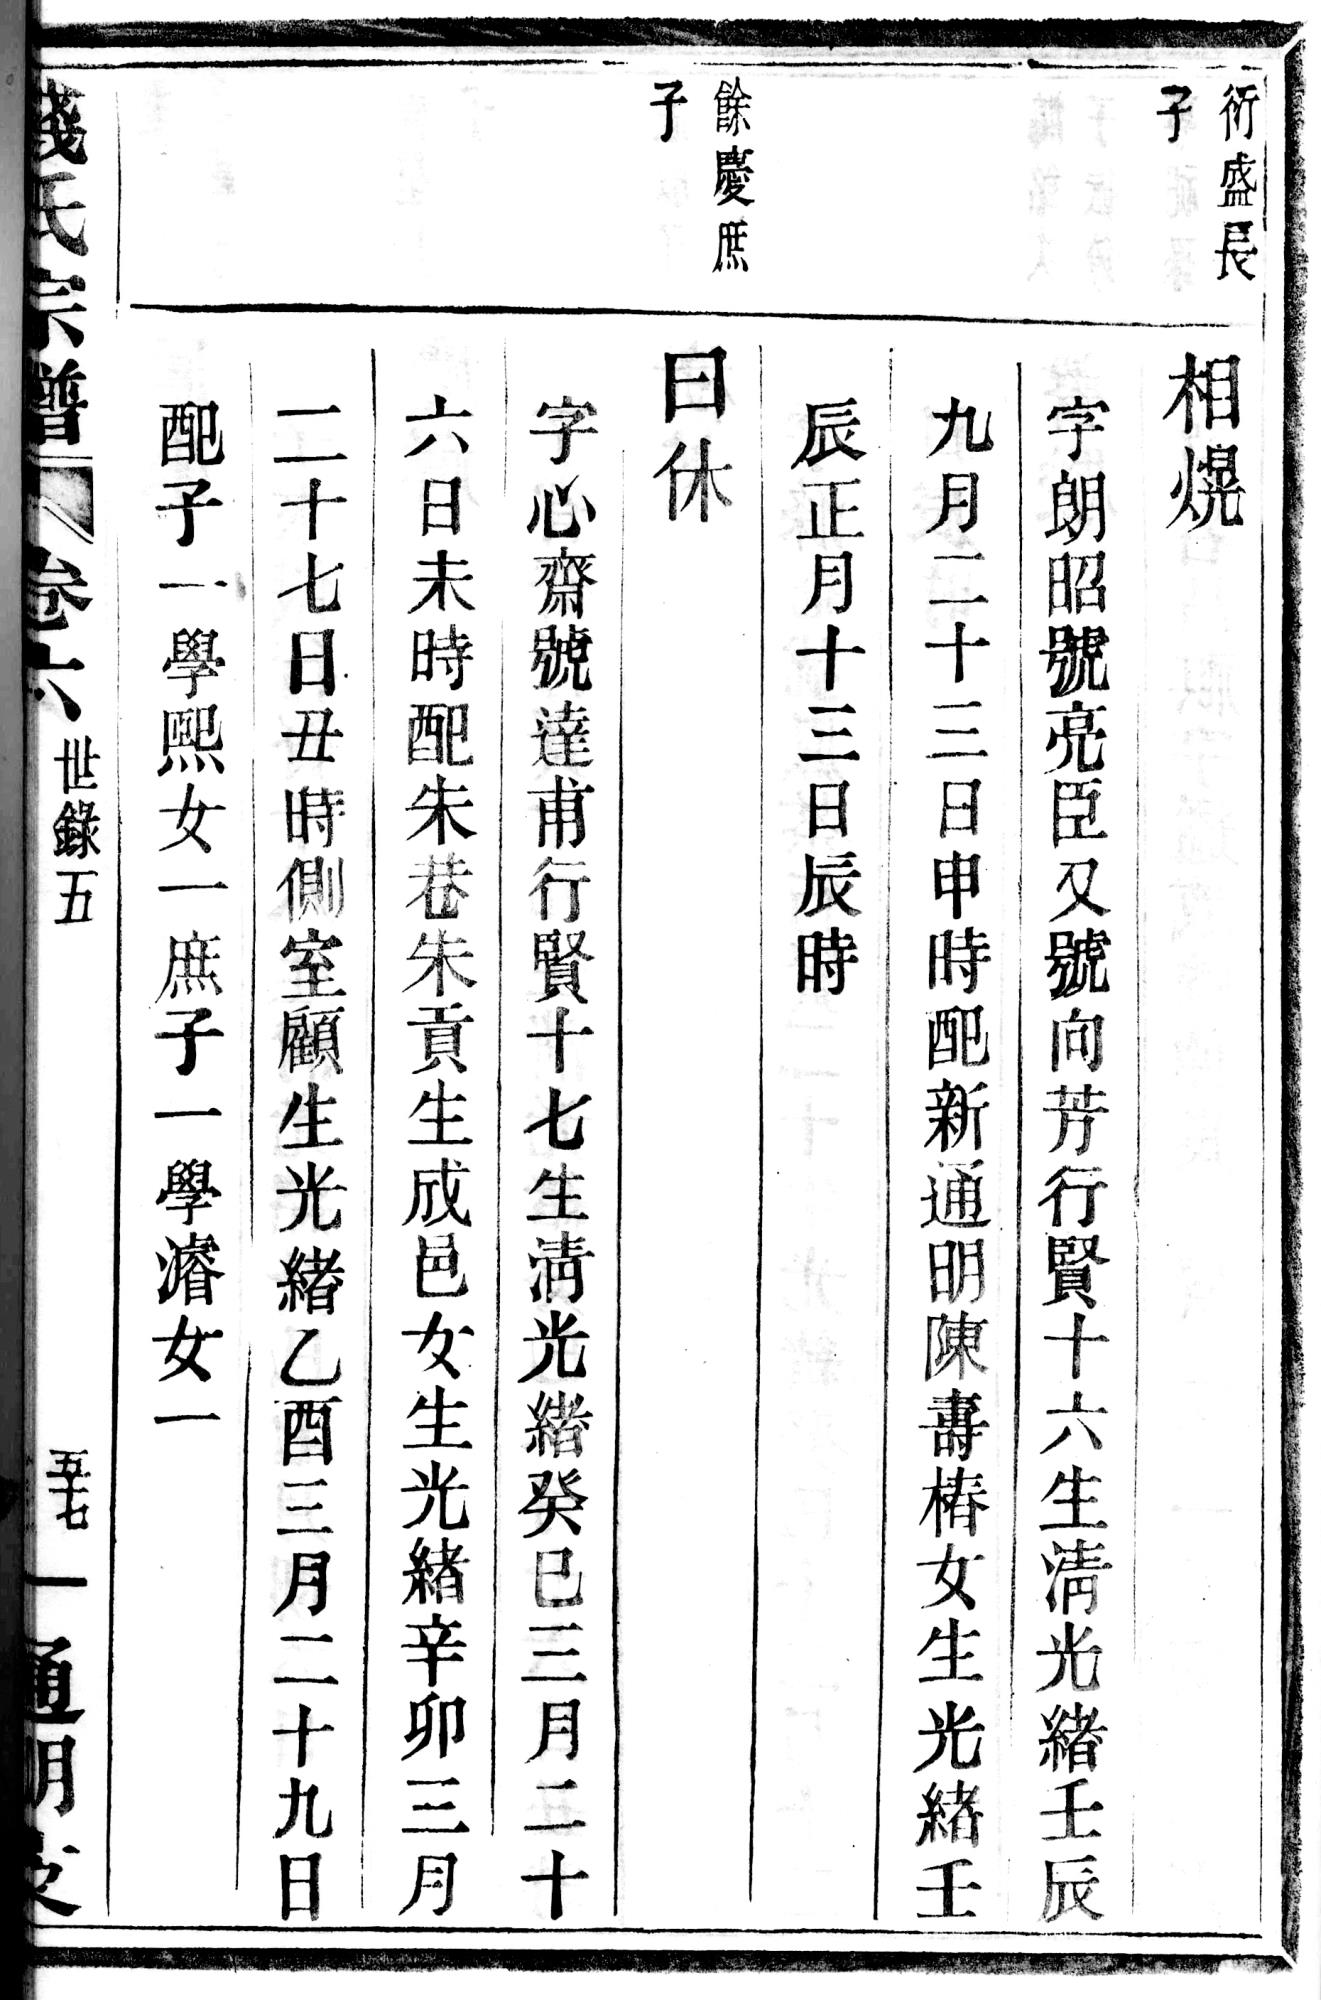 衍盛長
子
相熀
字朗昭號亮臣又號向芳行賢十六生淸光緒壬辰
九月二十三日申時配新通明陳壽椿女生光緒壬
辰正月十三日辰時
餘慶庶
子
曰休
字心齋號達甫行賢十七生淸光緒癸巳三月二十
六日未時配朱巷朱貢生成邑女生光緒辛卯三月
二十七日丑時側室顧生光緒乙酉三月二十九日
配子一學熙女一庶子一學濬女一
錢氏宗譜 卷六 世錄五 五十七 通明